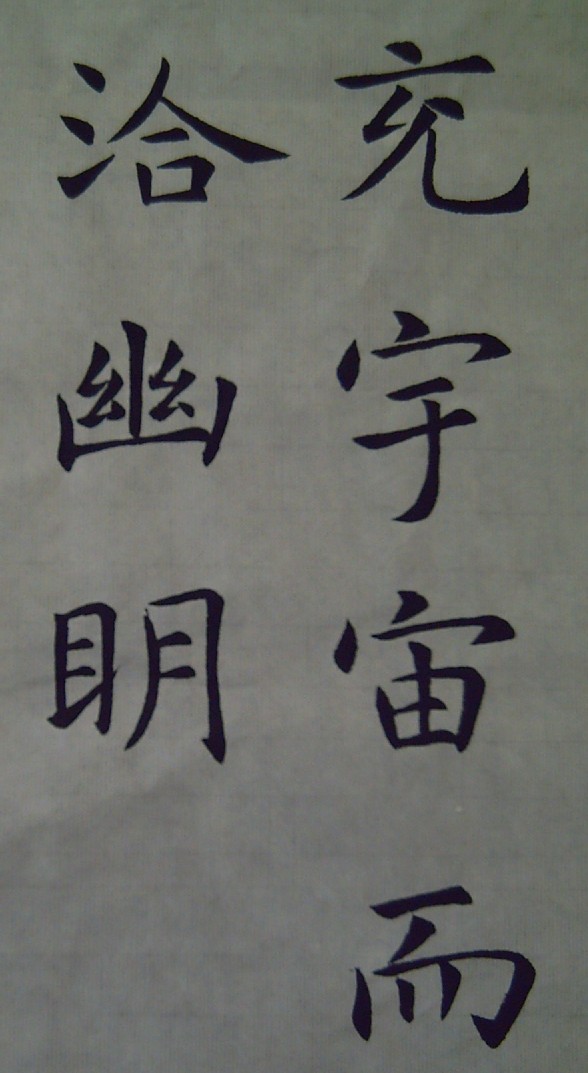 充宇宙而
洽幽明